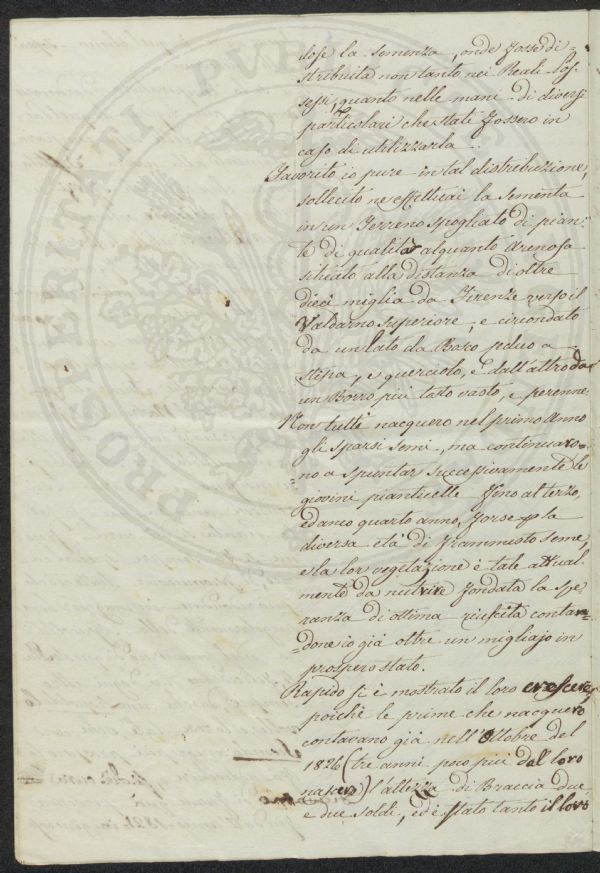 dose la semenza, onde fosse di=
stribuita non tanto nei Reali Pos-
sessi, quanto nelle mani di diversi
particolari che stati fossero in
caso di utilizzarla.
Favorito io pure in tal distribuzione,
sollecito ne effettuai la sementa
in un Terreno spogliato di pian-
te di qualità alquanto arenosa
situato alla distanza di oltre
dieci miglia da Firenze verso il
Valdarno superiore, e circondato
da un lato da Bosco ceduo a
stipa, e querciolo, e dall'altro da
un Borro più tosto vasto, e perenne
Non tutti nacquero nel primo Anno
gli sparsi semi, ma continuaro=
=no a spuntar successivamente le
giovini pianticelle fino al terzo,
ed anco quarto anno, forse p la
diversa età di frammisto seme,
e la lor vegetazione è tale attual-
mente da nutrire fondata la spe-
ranza di ottima riuscita contan=
=done io già oltre un migliajo in
prospero stato.
Rapido si è mostrato il loro crescere,
poichè le prime che nacquero
contavano già nell'Ottobre del
1826 (tre anni poco più del loro
nascere) l'altezza di Braccia due
e due soldi, ed è stato tanto il loro
PROSPERITATI PUBL